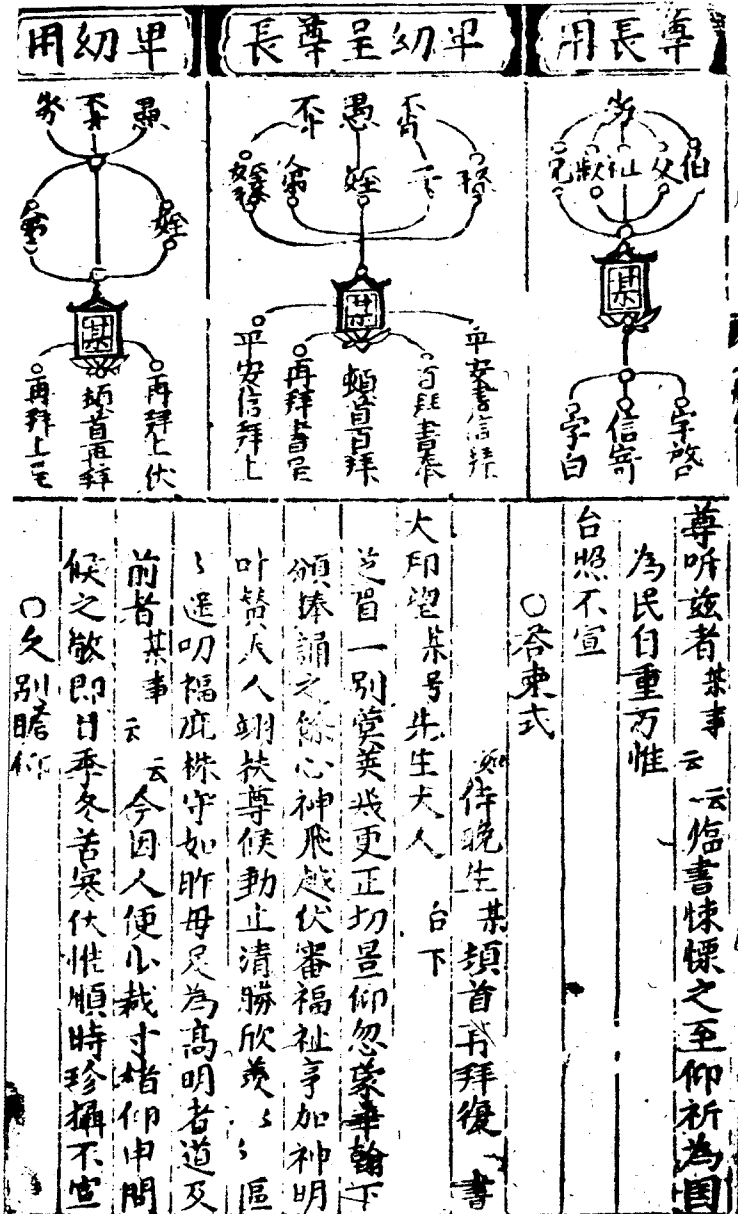 尊長用
伯
父
叔
兄
某
字啓
信寄
字白
卑幼呈尊長
不肖
愚
不才
孫
子
姪
某
平安書信拜
百拜書奉
頓首百拜
再拜書呈
平安信拜上
卑幼用
愚
不才
姪
某
再拜上伏
頓首再拜
再拜上
尊听兹者某事云云臨書悚慄之至仰祈為国
為民自重万惟
台照不宣
○答柬式
侍晚生某頓首再拜復書
大即望某号先生大人台下
芝眉一別蓂荚更正切景仰忽蒙華翰下
頒捧誦之餘心神飛越伏審福祉亨加神明
叶賛天人翊扶尊候動止清勝欣羨〻〻區
〻遠叨福庇株守如昨毋足為高明者道及
前者某事云云今因人便小裁寸楮仰申間
候之敬即日季冬苦寒伏惟順時珍攝不宣
○久別瞻仰